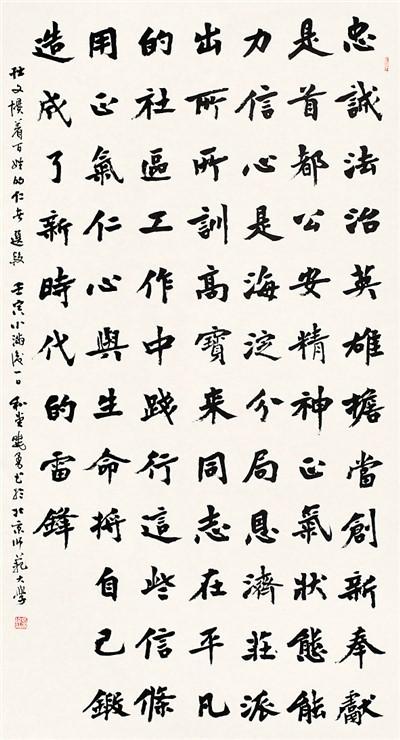 忠誠法治英雄擔當創新奉獻
是首都公安精神正氣狀態能
力信心是海淀分局恩濟莊派
出所所訓高寶來同志在平凡
的社區工作中踐行這些信條
用正氣仁心與生命將自己鍛
造成了新時代的雷鋒
着百姓的仁者選段 壬寅小滿後一日 和堂勇書於北京師範大學